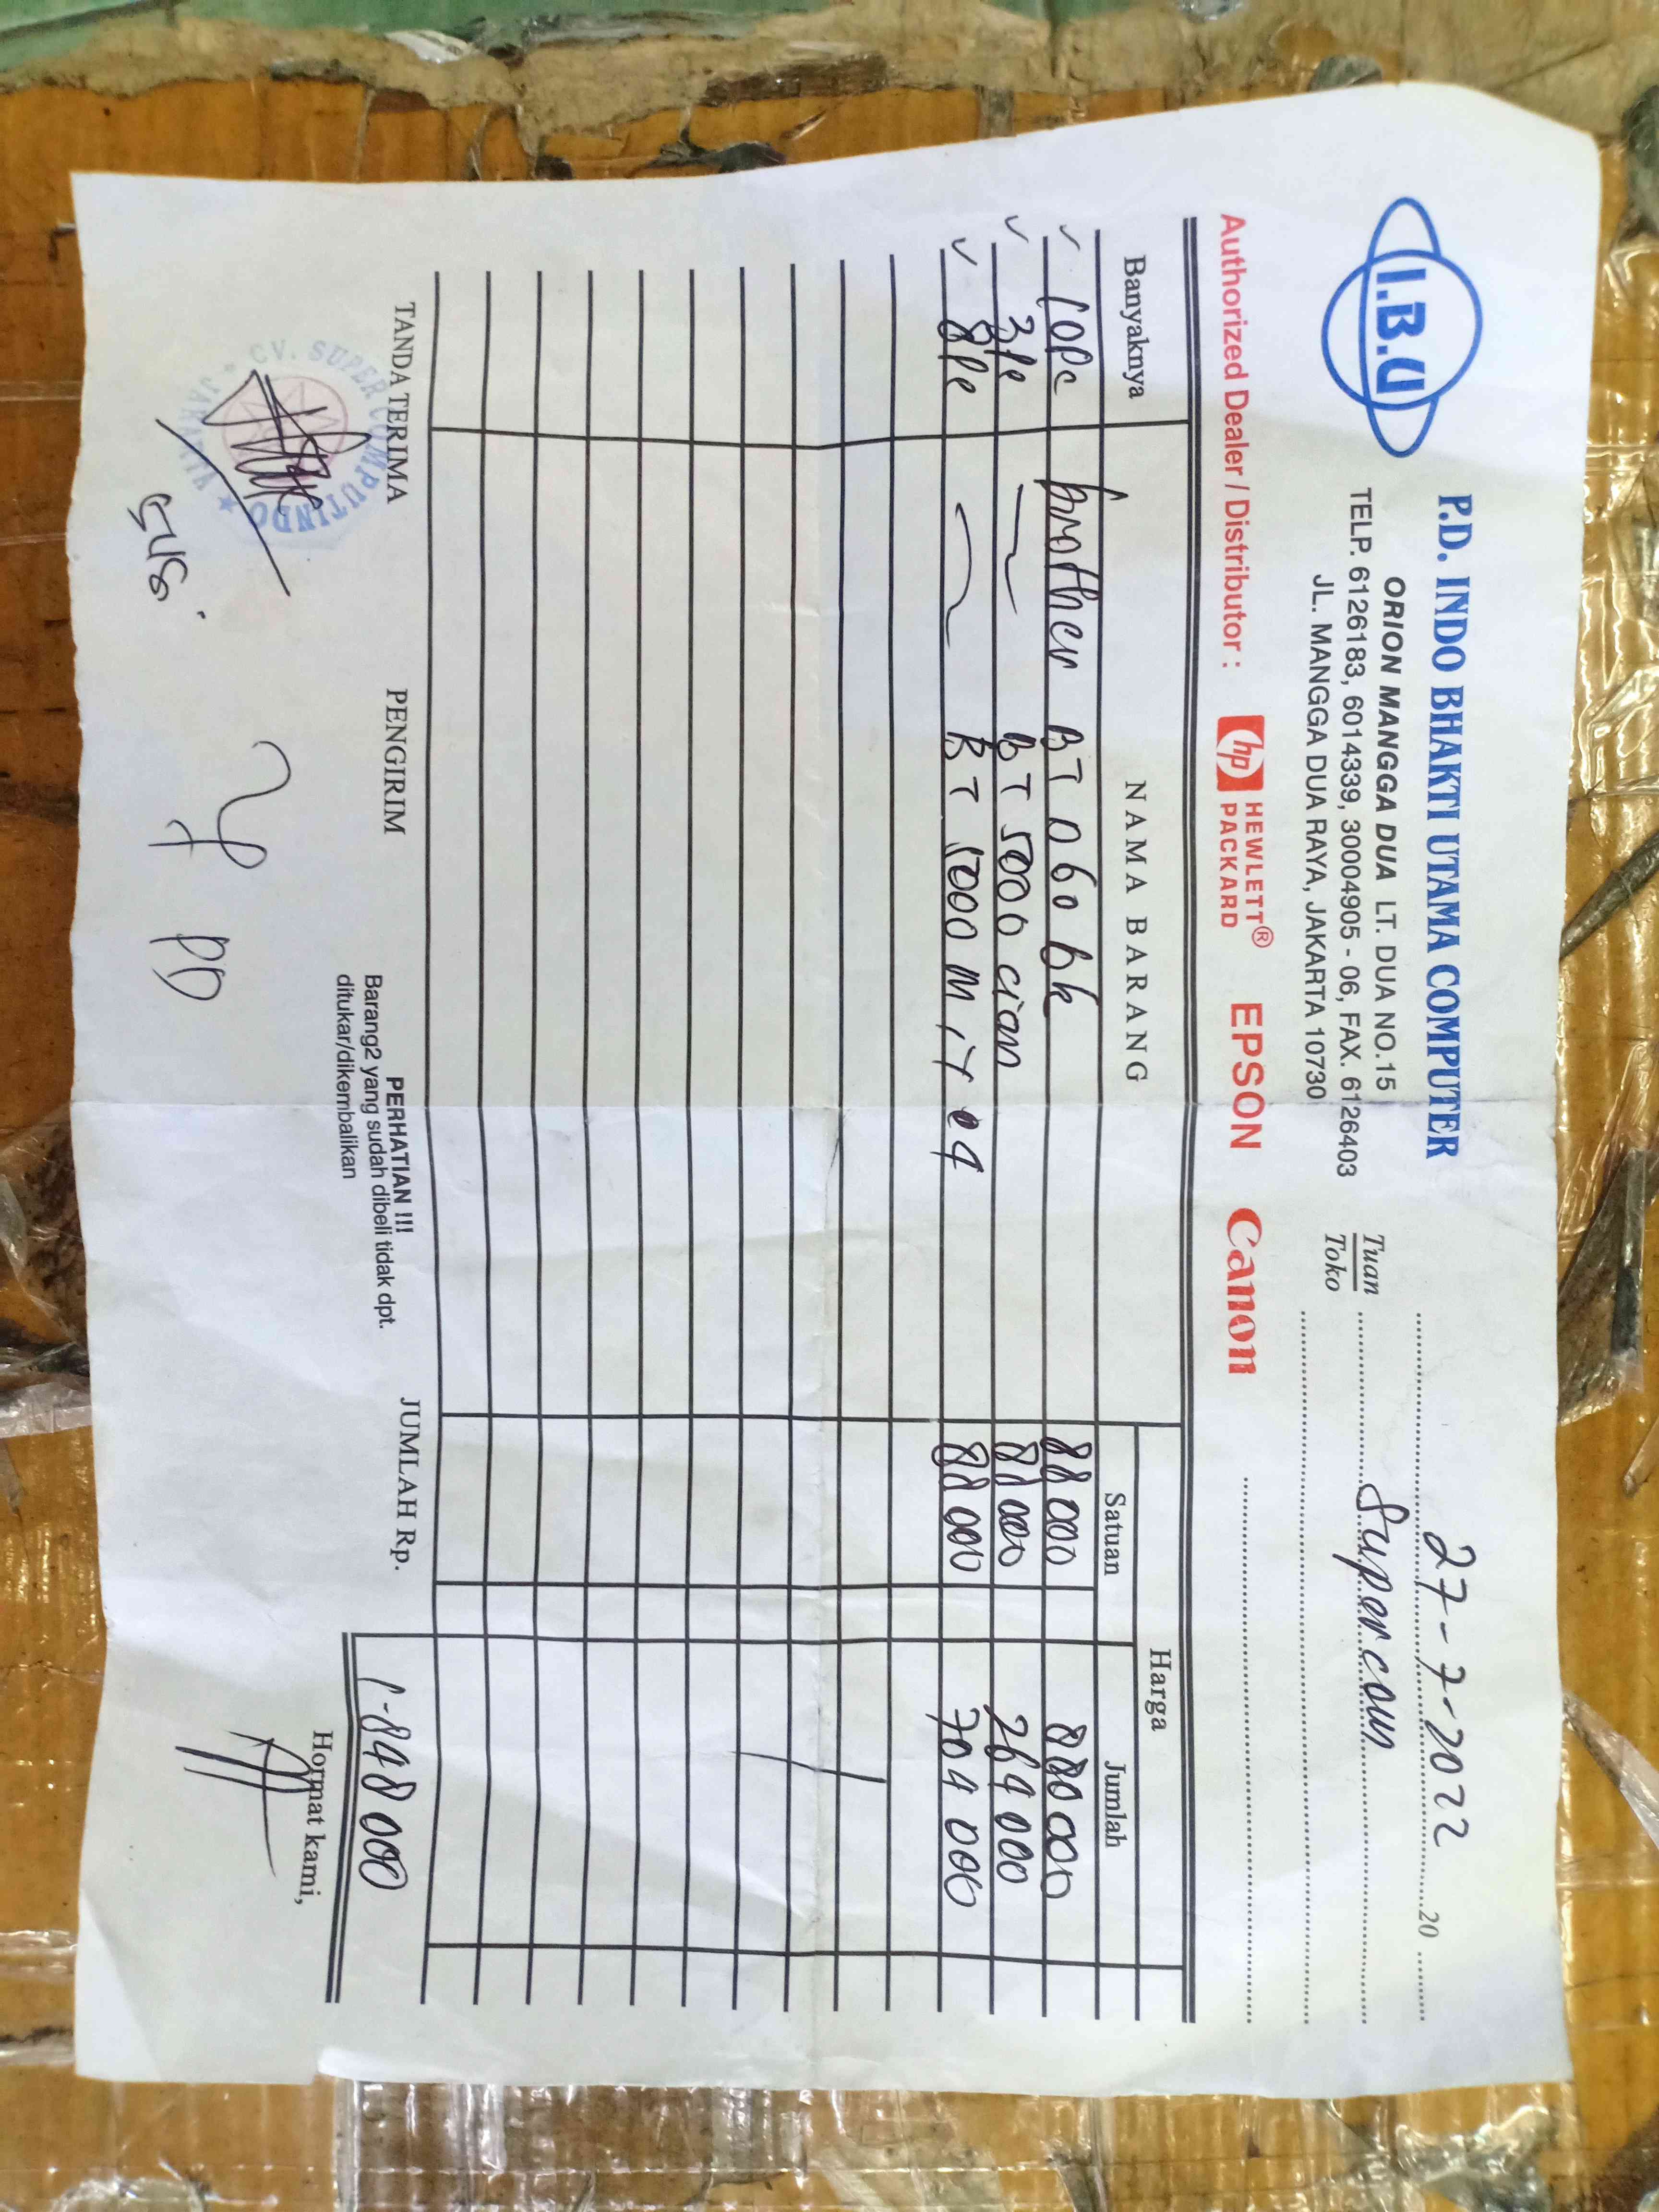 I.B.U
P.D. INDO BHAKTI UTAMA COMPUTER
ORION MANGGA DUA LT. DUA NO.15
TELP. 6126183, 6014339, 30004905 - 06, FAX. 6126403
JL. MANGGA DUA RAYA, JAKARTA 10730
27-7-2022 20
Tuan
Toko
Supercom
Authorized Dealer / Distributor : hp HEWLETT® PACKARD EPSON Canon
Banyaknya NAMA BARANG Harga
Satuan Jumlah
10pc brother BT D60 bk 88 000 880 000
3pc BT 5000 cian 88 000 264 000
8pc BT 5000 m, y ea 88 000 704 000
TANDA TERIMA PENGIRIM PERHATIAN !!! JUMLAH Rp. 1.848 000
Barang2 yang sudah dibeli tidak dpt.
ditukar/dikembalikan
Hormat kami,
CV. SUPER COMPUTINDO
JAKARTA